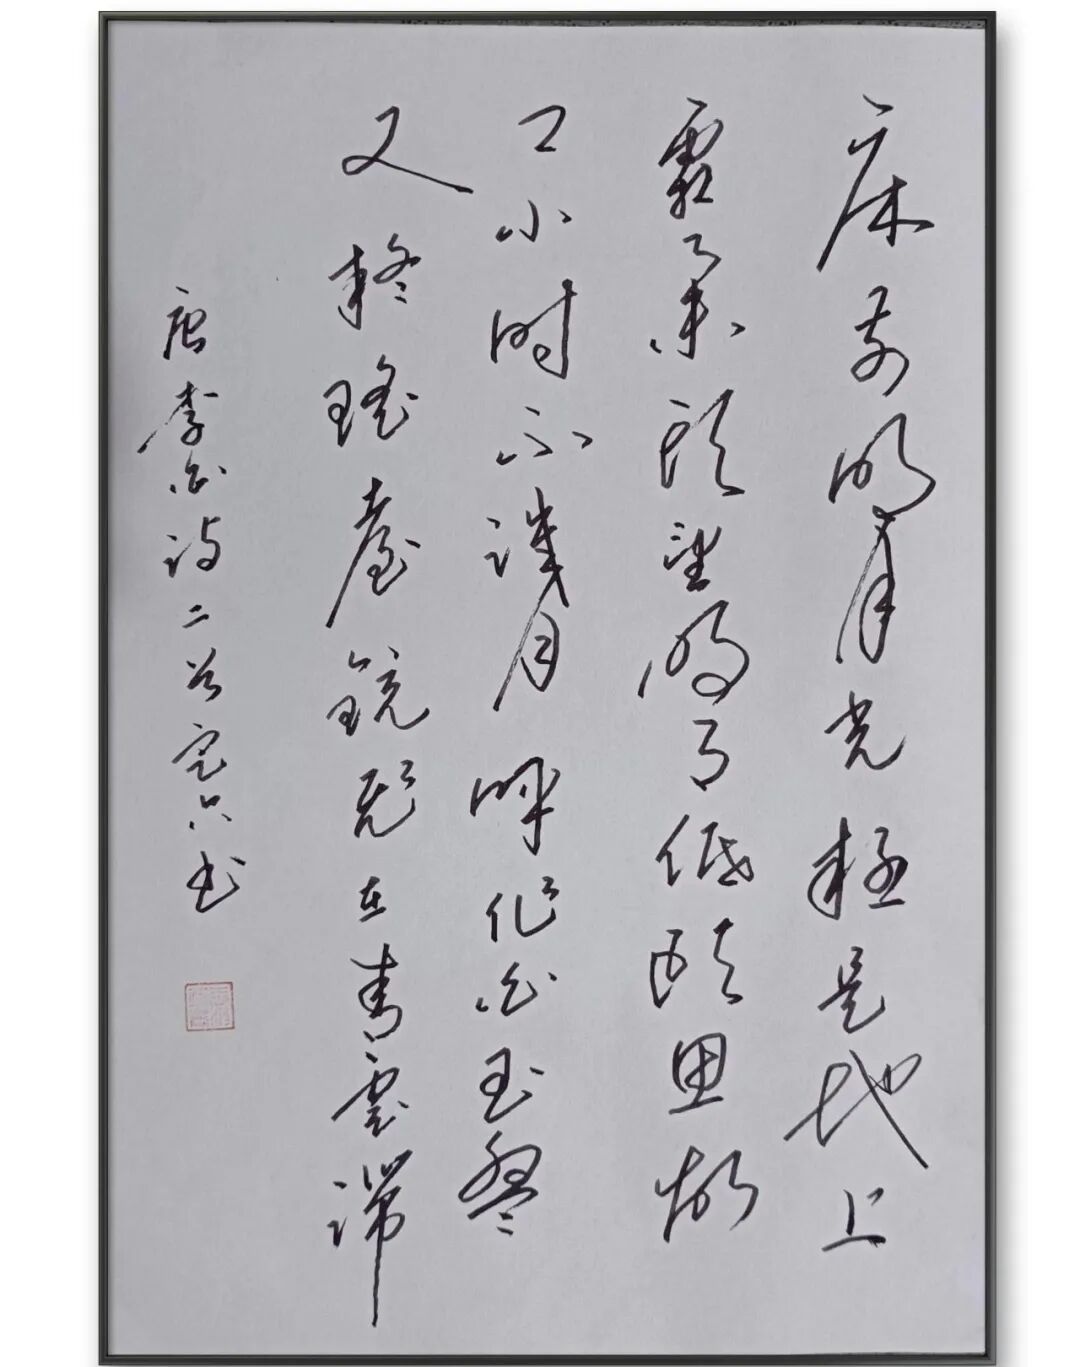 床前明月光疑是地上
霜举頭望明月低頭思故
乡小时不識月呼作白玉盤
又疑瑶臺鏡飛在青雲端
唐李白诗二首书